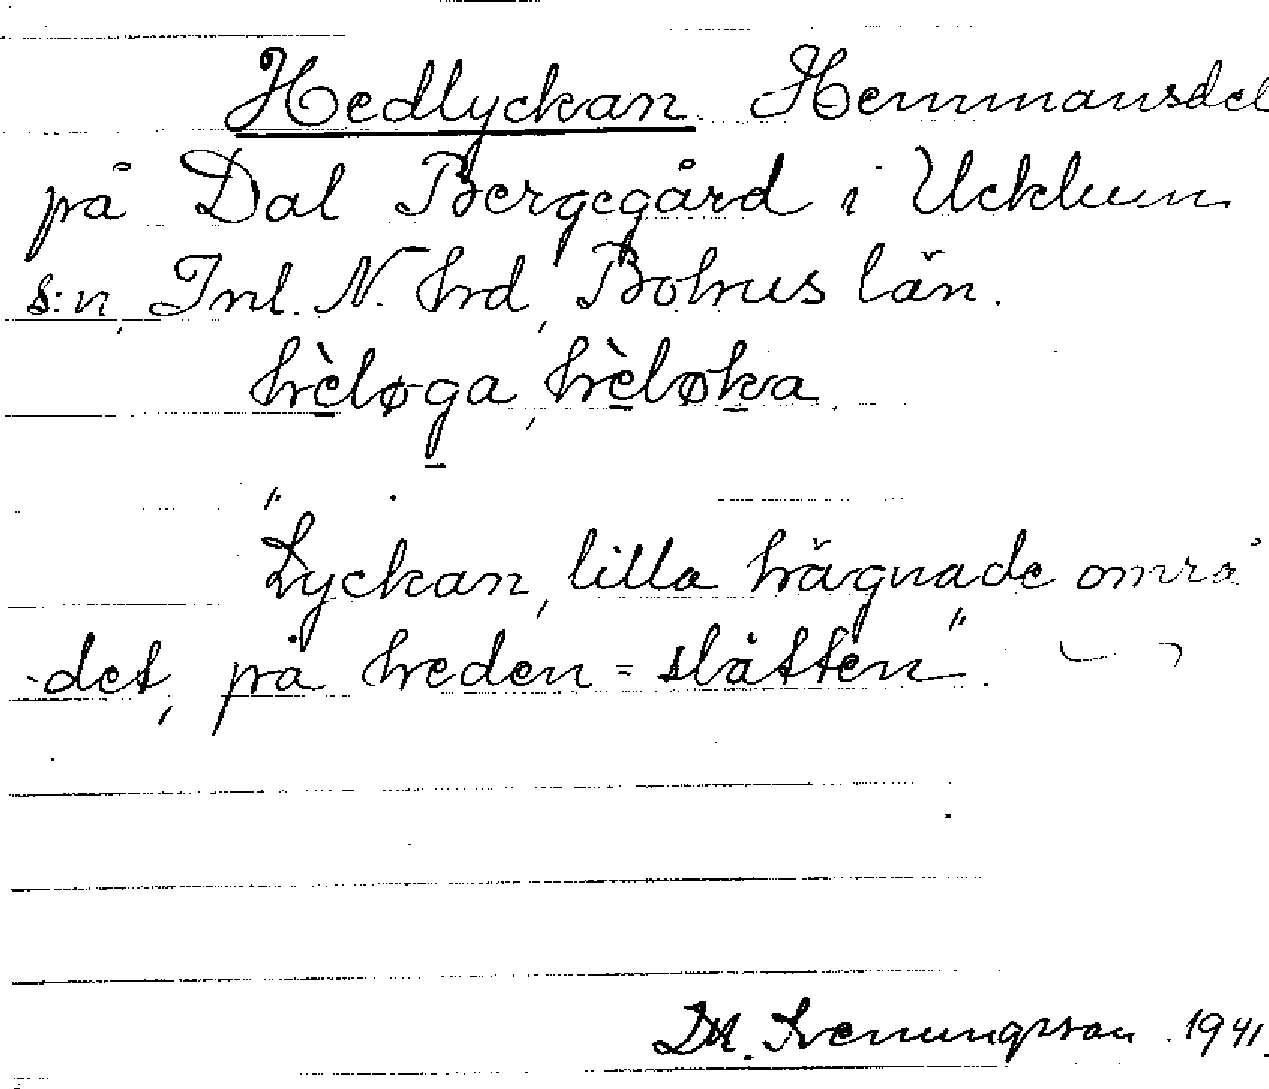 Hedlyckan Hemmansdel
på Dal Bergegård i Ucklum
s:n, Inl. N. hrd, Bohus län.
hèløga, hèløka.
"Lyckan, lilla hägnade områ
-det, på heden = slätten".
Svenungsson. 1941.